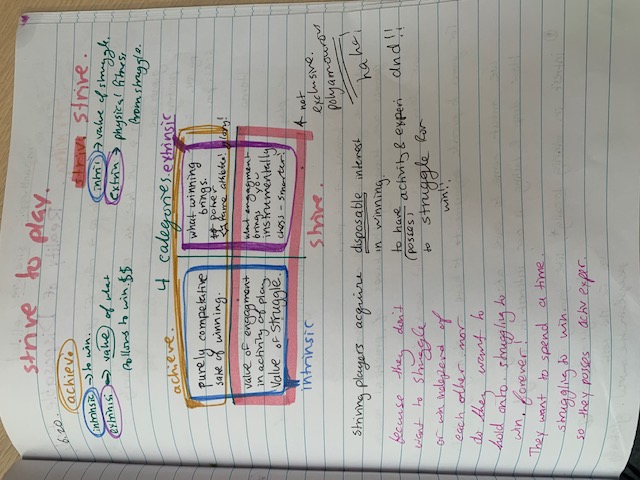 strive to play.
6.20.
achieve.
intrinsic → to win.
extrinsi → value of what
follows to win. $$
strive strive.
intri → value of struggle.
extrin → physical fitness
from struggle.
4 categories.
achieve.
extrinsic
purely competative
sake of winning.
what winning
brings.
$$ poker
☆ fame athlete! glory!
value of engagment
in activity of play.
value of struggle.
what engagment
brings you
instrumentally
chess - smarter!
intrinsic
strive.
↑ not
exclusive.
polyamourous
haha!
dnd!!
striving players acquire disposable interest
in winning.
to have
(posses) activity & experi
to struggle for
win!!
because they don't
want to struggle
or win independ of
each other. nor
do they want to
hold onto struggling to
win. forever!
They want to spend a time.
struggling to win.
so they posses activ exper.